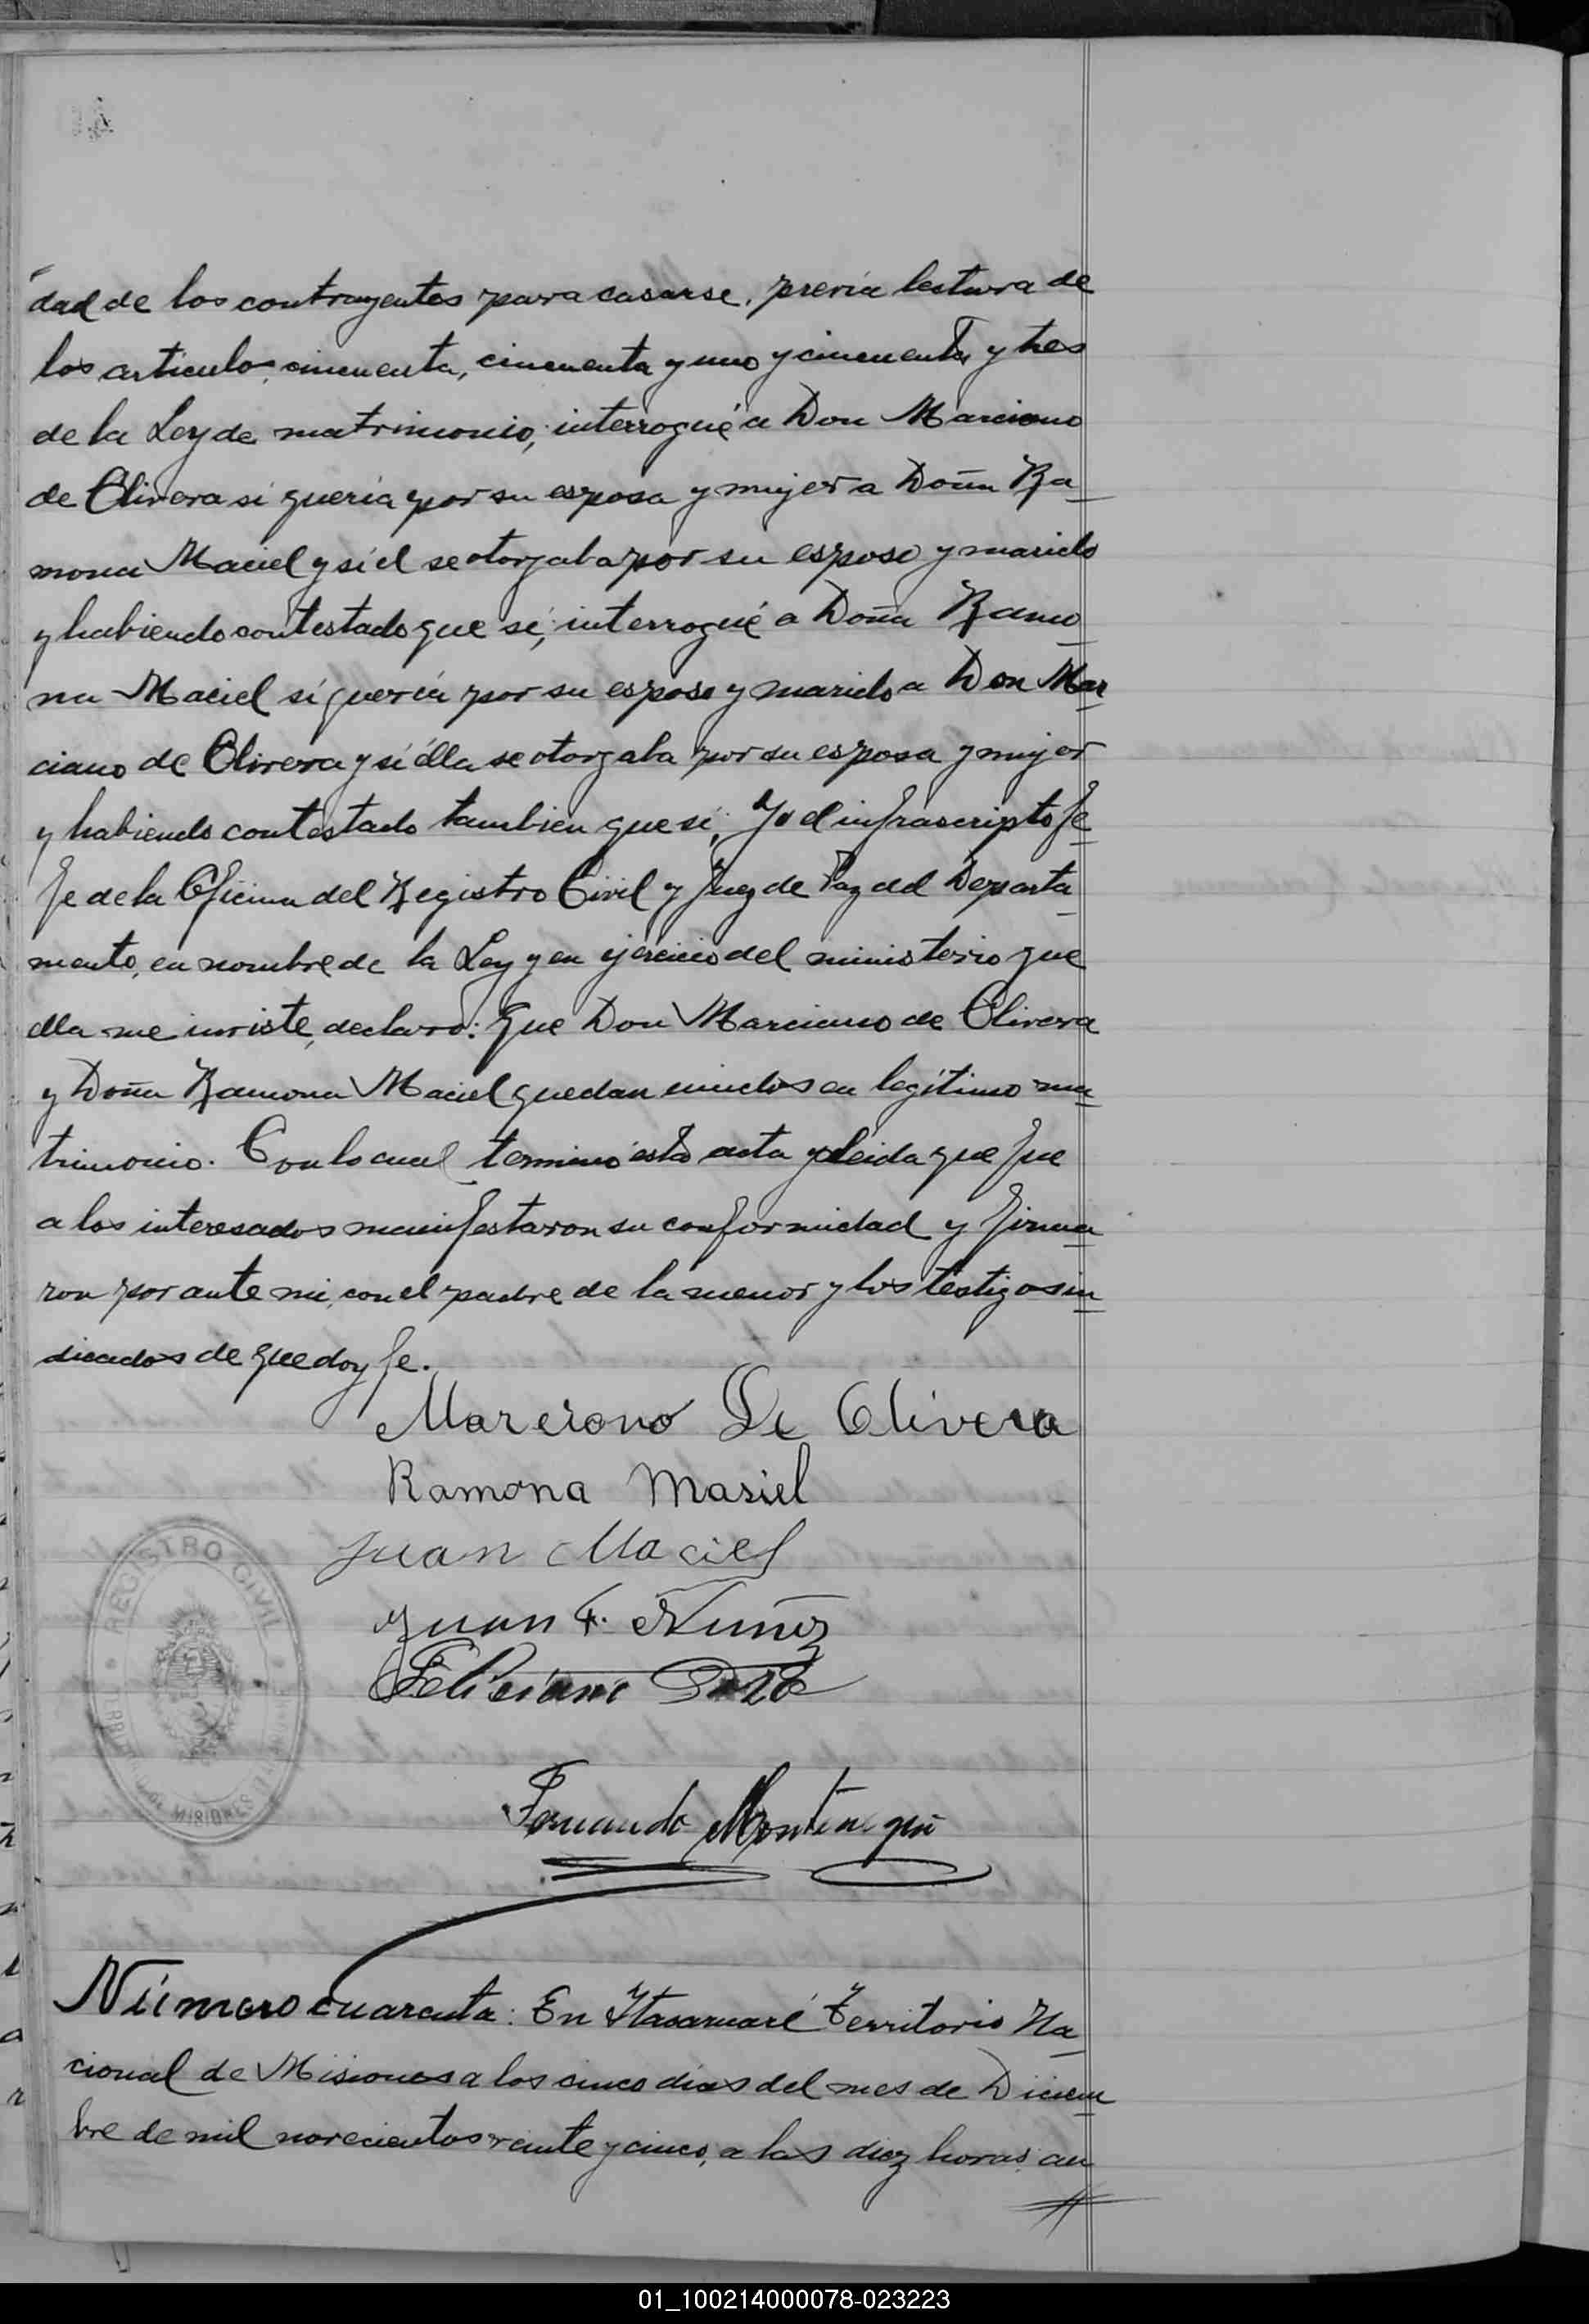 dad de los contrayentes para casarse, previa lectura de
los artículos cincuenta, cincuenta y uno y cincuenta y tres
de la Ley de matrimonio, interrogué a Don Marciano
de Olivera si quería por su esposa y mujer a Doña Ra-
mona Maciel y si él se otorgaba por su esposo y marido
y habiendo contestado que sí, interrogué a Doña Ramo-
na Maciel si quería por su esposo y marido a Don Mar-
ciano de Olivera y si élla se otorgaba por su esposa y mujer
y habiendo contestado tambien que sí, Yo el infrascripto Je-
fe de la Oficina del Registro Civil y Juez de Paz del Departa-
mento, en nombre de la Ley y en ejercicio del ministerio que
ella me inviste, declaro: Que Don Marciano de Olivera
y Doña Ramona Maciel quedan unidos en legítimo ma-
trimonio. Con lo cual terminó esta acta y leida que fue
a los interesados manifestaron su conformidad y firma-
ron por ante mi, con el padre de la menor y los testigos in-
dicados de que doy fe.
Marciano De Olivera
Ramona Masiel
Juan Maciel
Juan F. Nuñez
Feliciano
REGISTRO CIVIL
MISIONES
Fernando Montenegro
Número cuarenta: En Itacaruaré Territorio Na-
cional de Misiones a los cinco días del mes de Diciem-
bre de mil novecientos veinte y cinco, a las diez horas, an-
01_100214000078-023223